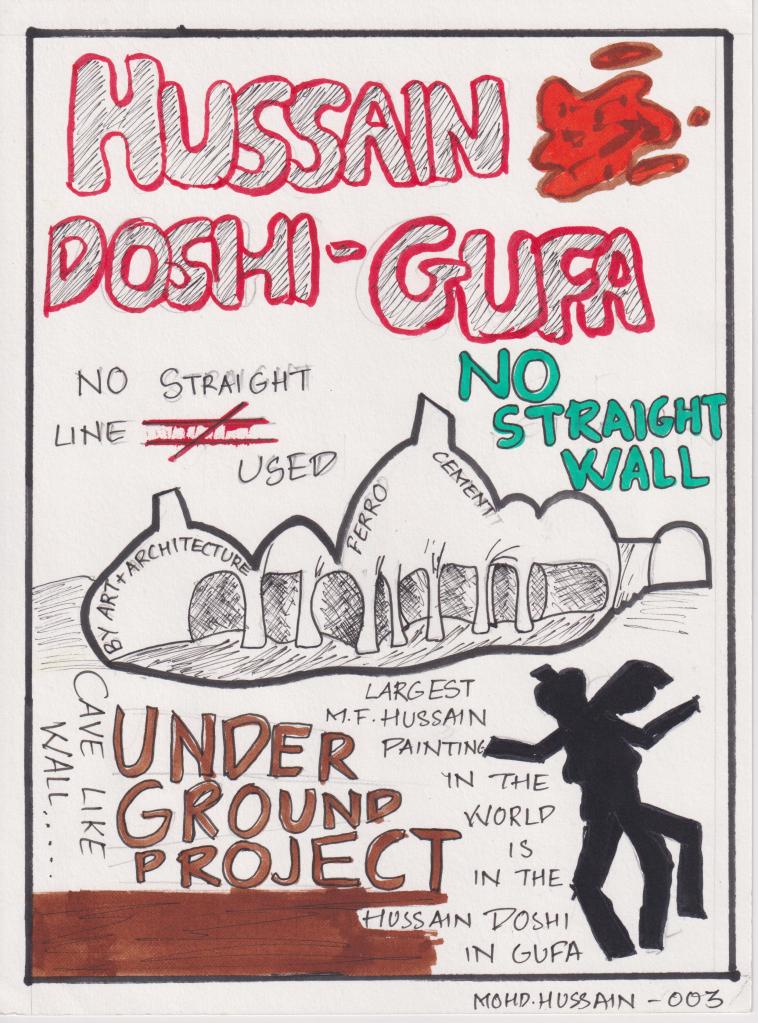 HUSSAIN
DOSHI-GUFA
NO STRAIGHT
LINE
USED
NO
STRAIGHT
WALL
BY ART+ARCHITECTURE
FERRO
CEMENT
CAVE LIKE
WALL.....
UNDER
GROUND
PROJECT
LARGEST
M.F.HUSSAIN
PAINTING
IN THE
WORLD
IS
IN THE
HUSSAIN DOSHI
IN GUFA
MOHD.HUSSAIN - 003